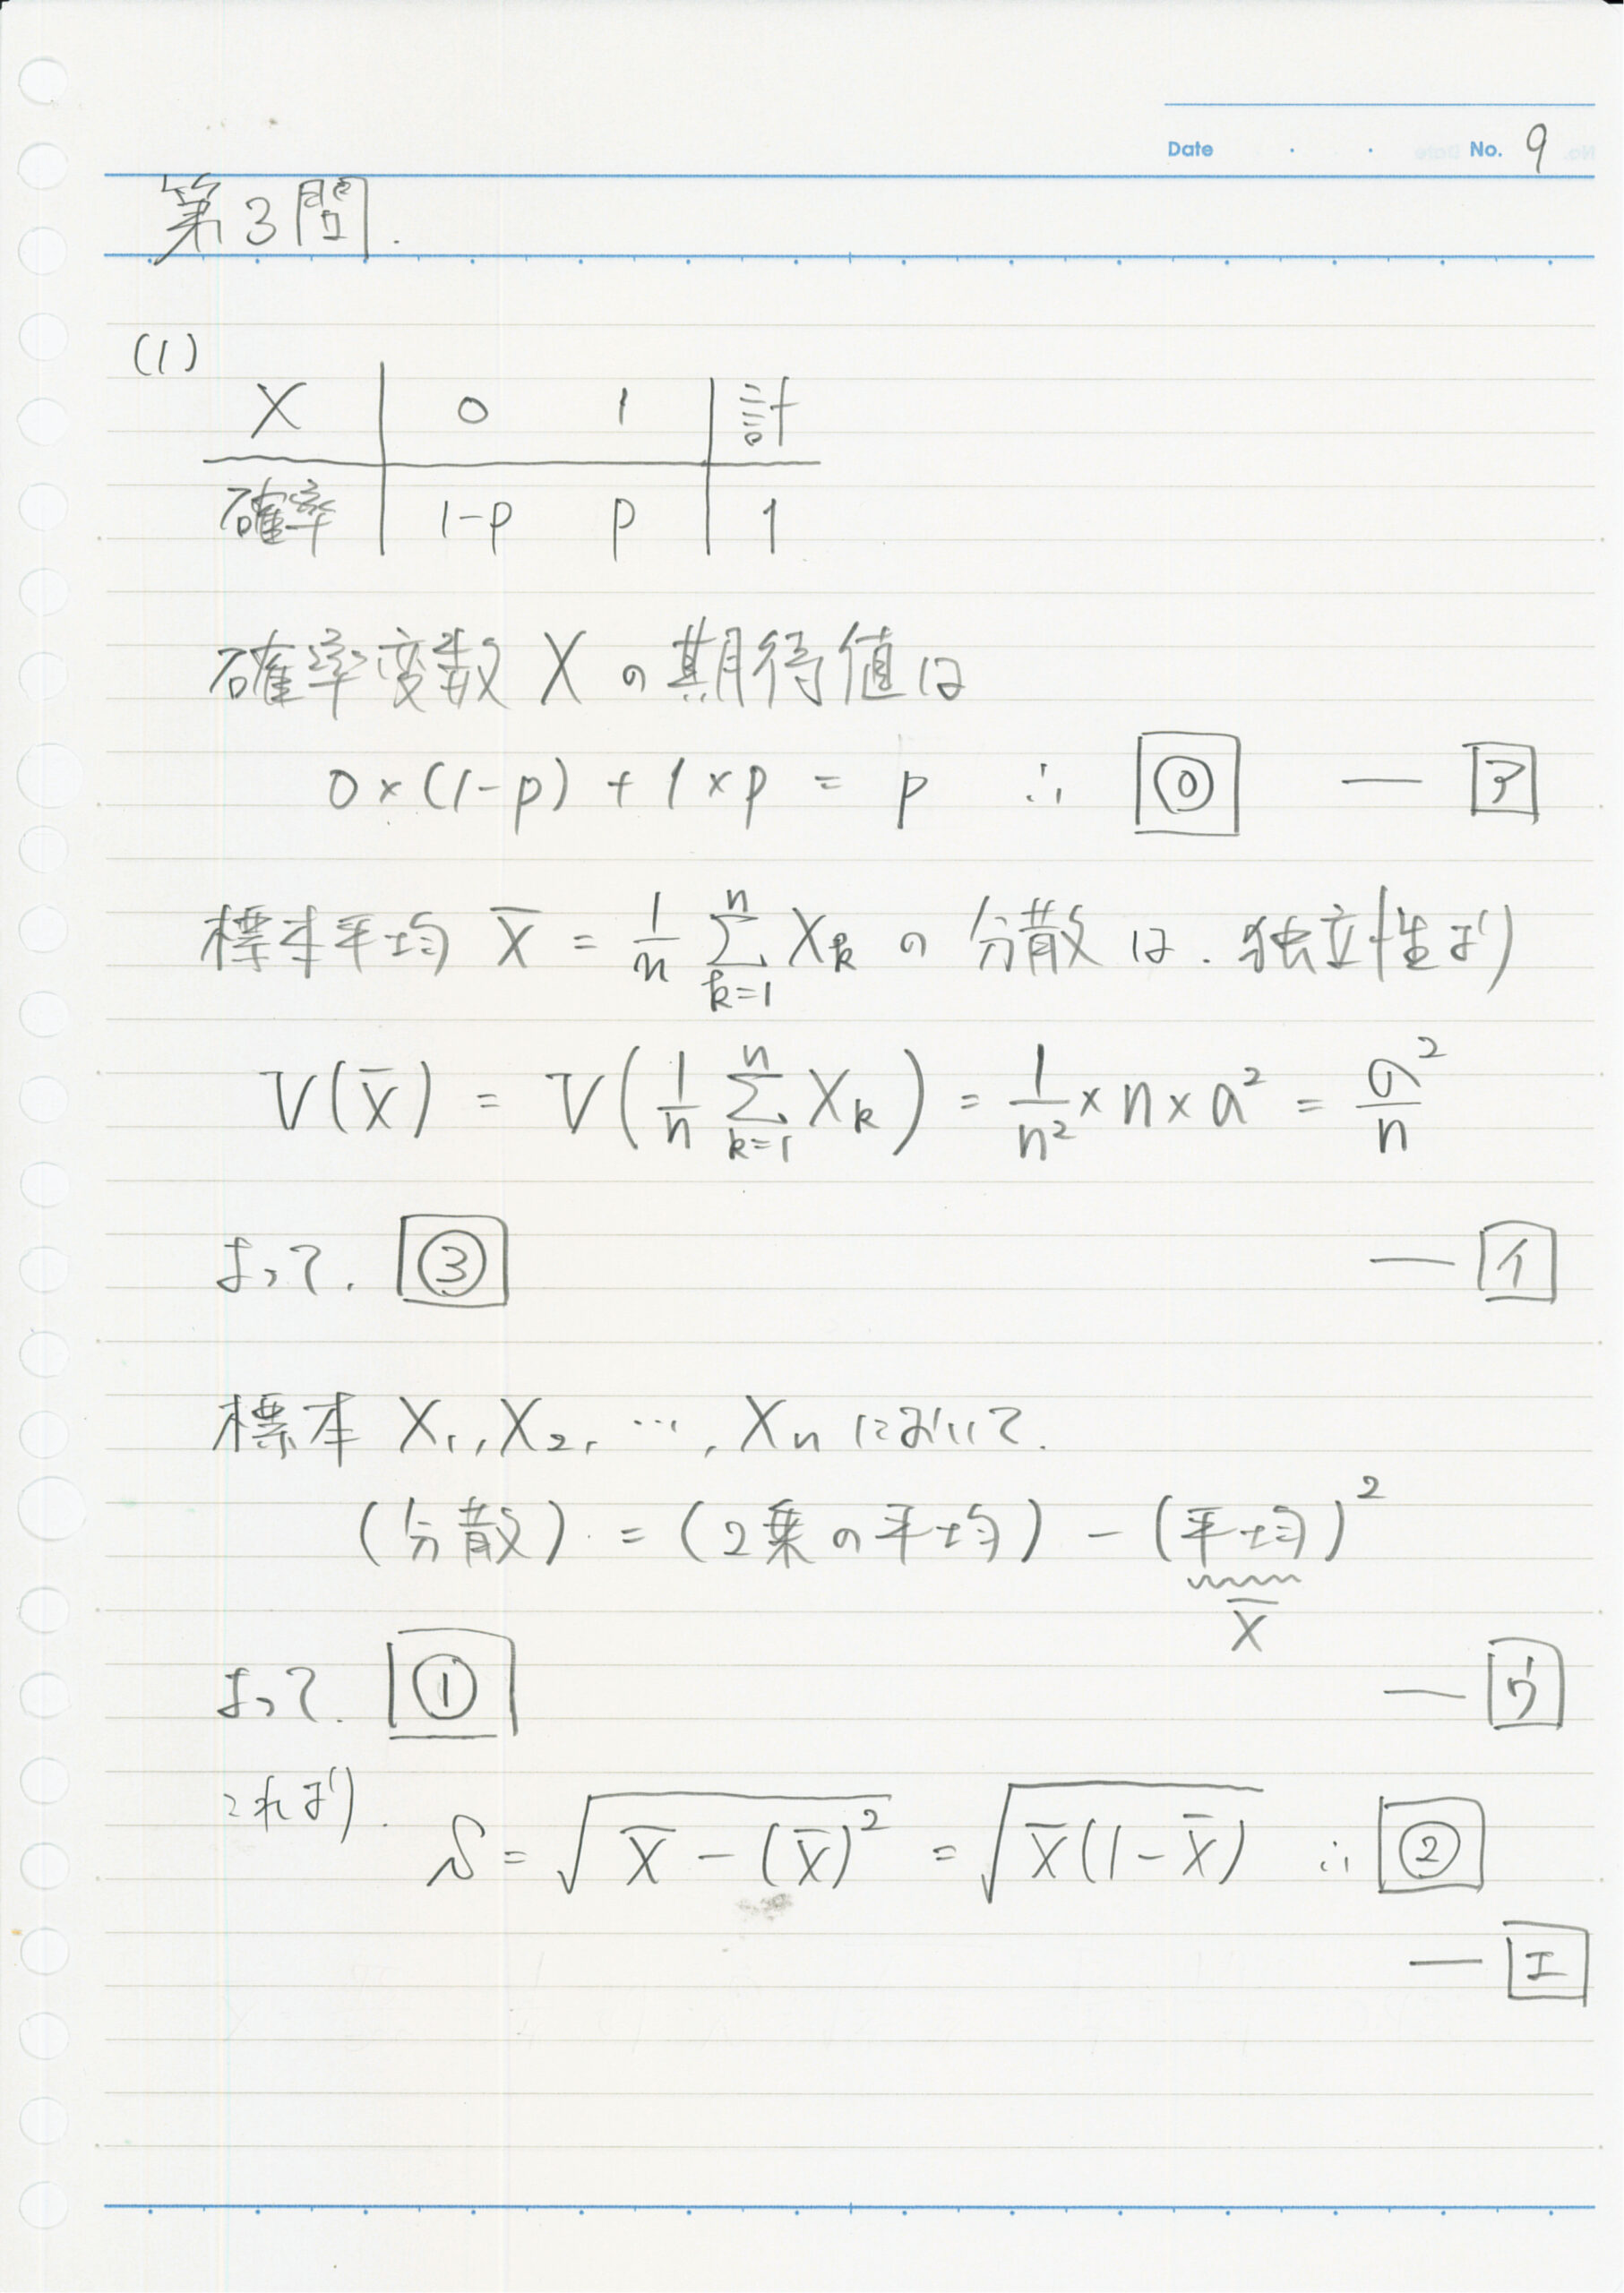 Date . . No. 9
第3問.
(1)
X | 0 1 | 計
確率 | 1-p p | 1
確率変数 X の期待値は
0×(1-p) + 1×p = p ∴ ⓪ — ア
標本平均 X̄ = 1/n Σ_{k=1}^{n} X_k の分散は. 独立性より
V(X̄) = V(1/n Σ_{k=1}^{n} X_k) = 1/n² × n × σ² = σ²/n
よって. ③ — イ
標本 X₁, X₂, …, Xₙ において.
(分散) = (2乗の平均) - (平均)²
X̄
よって. ① — ウ
これより. S = √(X̄ - (X̄)²) = √(X̄(1-X̄)) ∴ ②
— エ